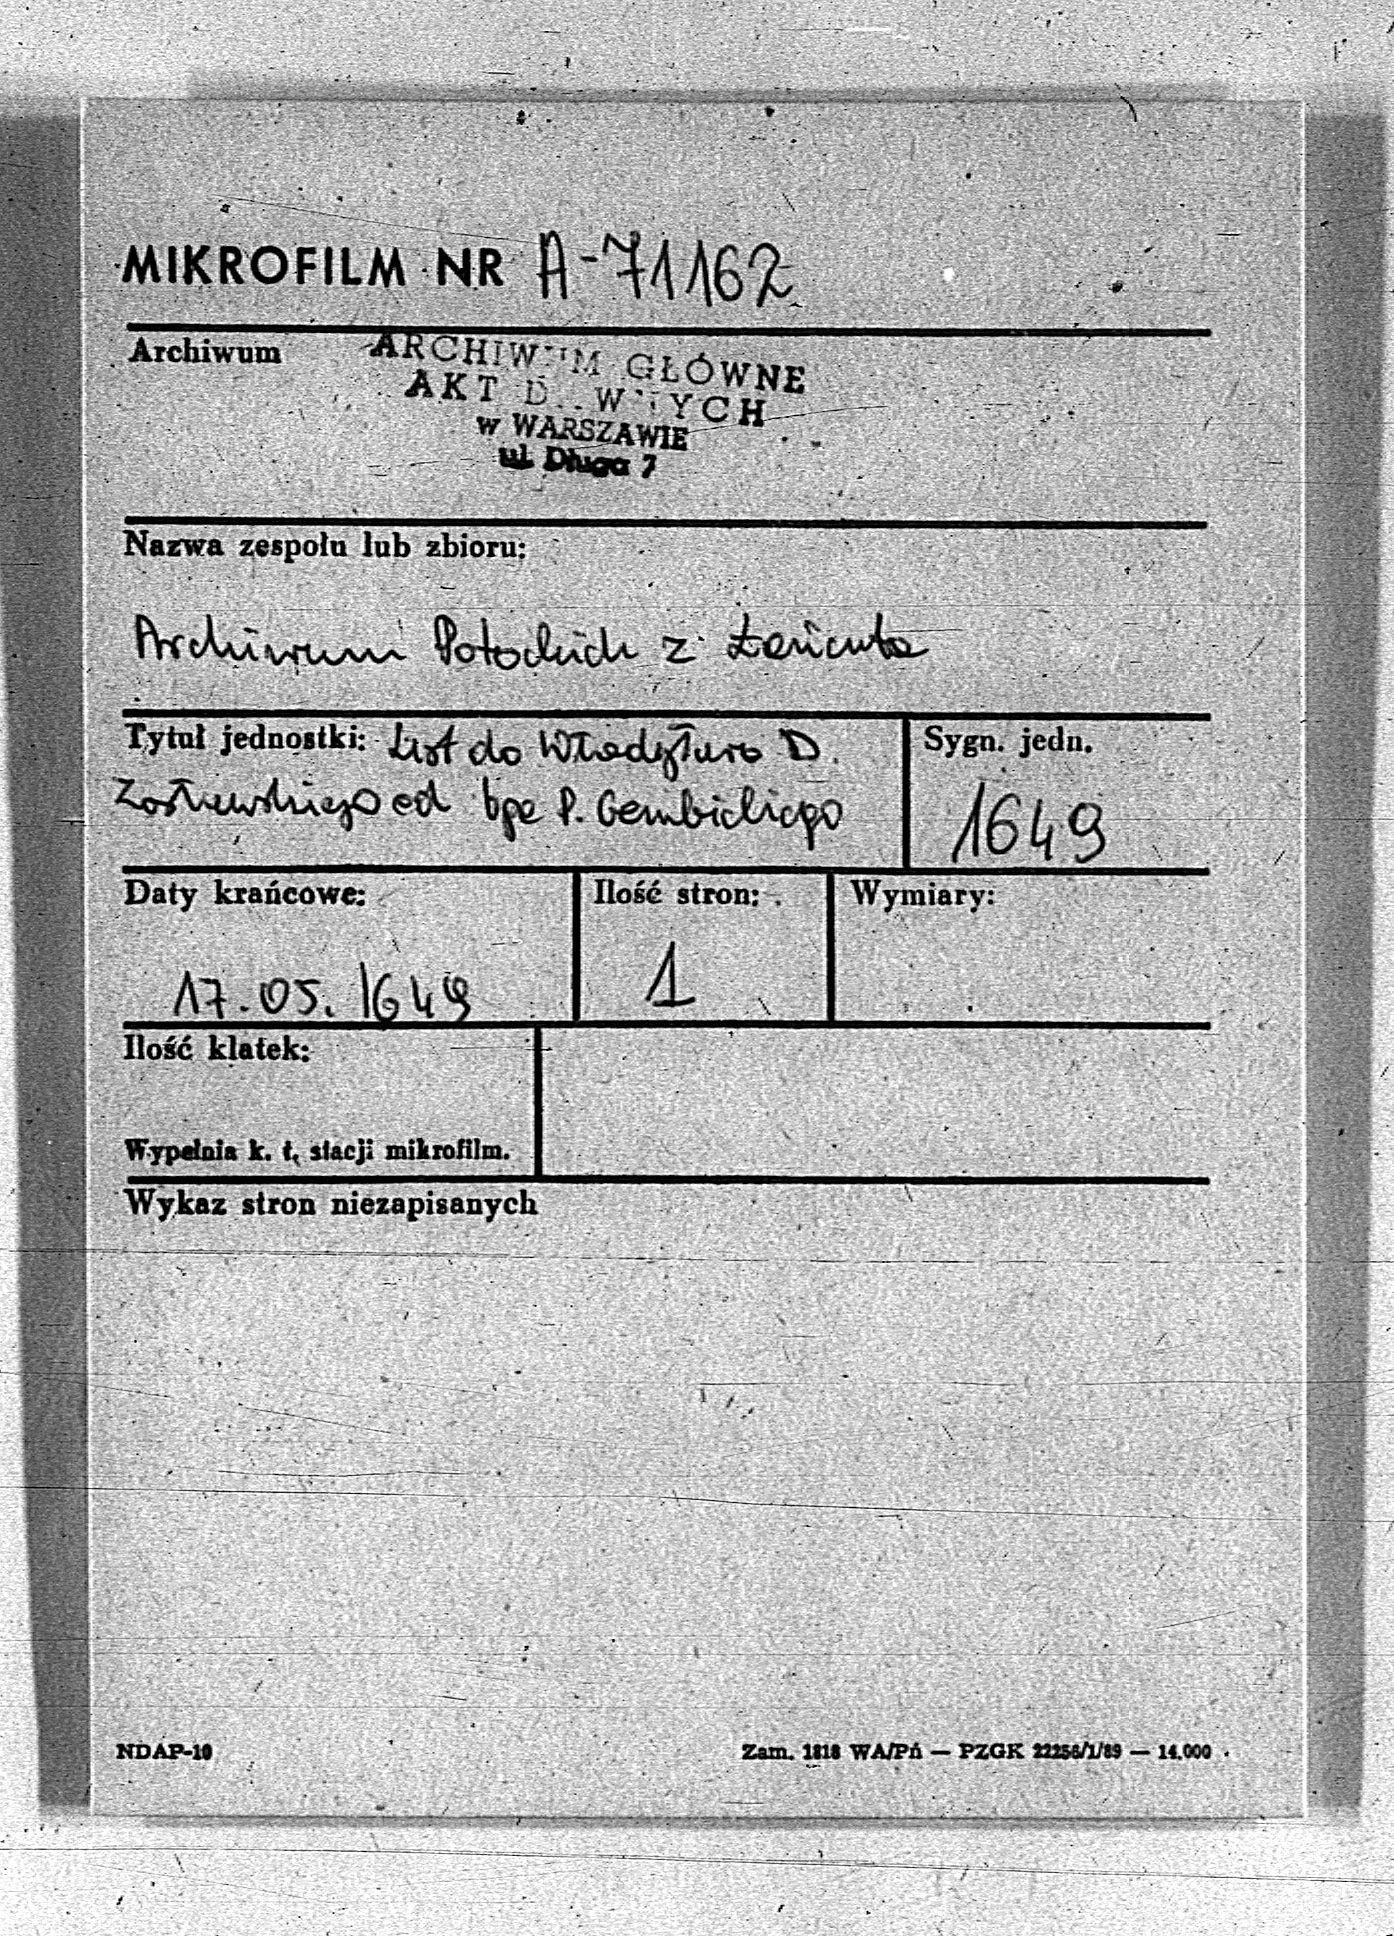 MIKROFILM NR A-71162
Archiwum
ARCHIWUM GŁÓWNE
AKT D WNYCH
w WARSZAWIE
ul. Długa 7
Nazwa zespołu lub zbioru:
Archiwum Potockich z Łańcuta
Tytuł jednostki: List do Władysława D.
Zasławskiego od bpa P. Gembickiego
Sygn. jedn.
1649
Daty krańcowe:
17.05.1649
Ilość stron:
1
Wymiary:
Ilość klatek:
Wypełnia k. t. stacji mikrofilm.
Wykaz stron niezapisanych
NDAP-10
Zam. 1818 WA/Pń — PZGK 22256/1/89 — 14.000